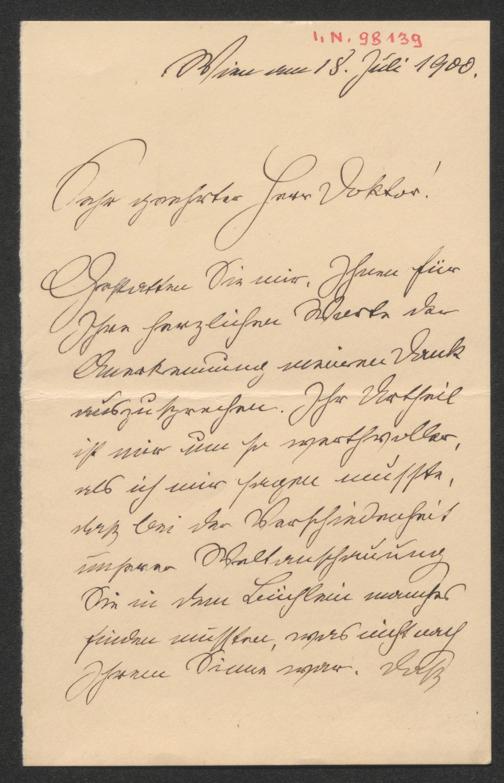 I. N. 98139
Wien am 18. Juli 1900.
Sehr geehrter Herr Doktor!
Gestatten Sie mir, Ihnen für
Ihre herzlichen Worte der
Anerkennung meinen Dank
auszusprechen. Ihr Urtheil
ist mir um so werthvoller,
als ich mir sagen musste,
daß bei der Verschiedenheit
unserer Weltanschauung
Sie in dem Büchlein manches
finden mussten, was nicht nach
Ihrem Sinne war. Daß